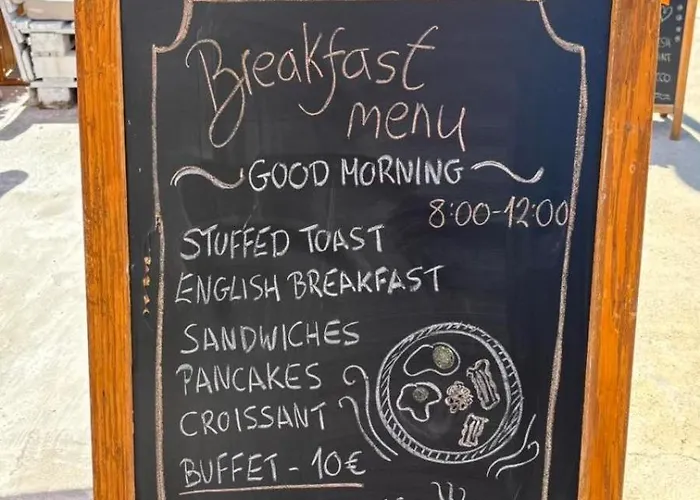 Breakfast
menu
GOOD MORNING
8:00-12:00
STUFFED TOAST
ENGLISH BREAKFAST
SANDWICHES
PANCAKES
CROISSANT
BUFFET - 10€